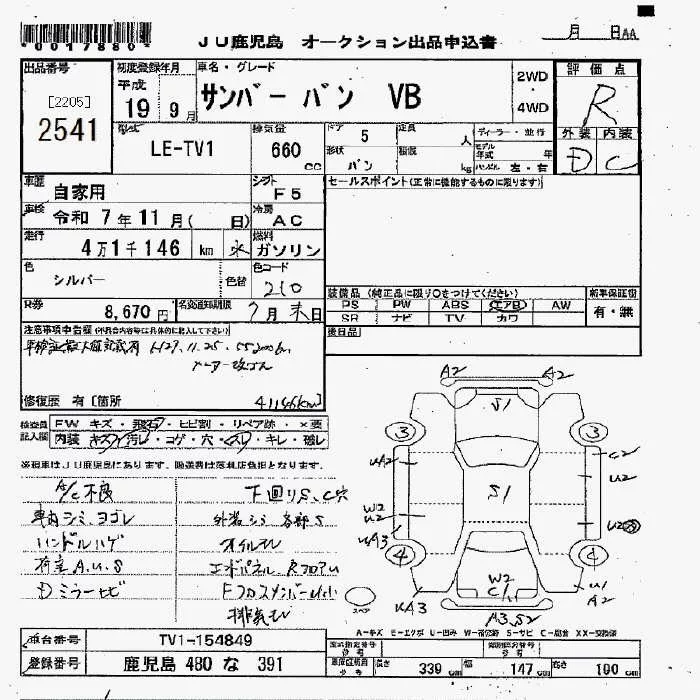 *0017880*
JU鹿児島 オークション出品申込書
月 日AA
出品番号
[2205]
2541
初度登録年月
平成
19 9月
車名・グレード
サンバー バン VB
2WD
・
4WD
評価点
R
外装 内装
D C
型式
LE-TV1
排気量
660 cc
ドア 5
定員 人
形状 バン
積載 kg
ディーラー・並行
モデル年式 年
ハンドル 左・右
車歴
自家用
シフト
F5
セールスポイント(正常に機能するものに限ります)
車検
令和 7年 11月( 日)
冷房
AC
走行
4万1千146 km
燃料
ガソリン
色
シルバー
色替
色コード
210
R券
8,670円
名変通知期限
7月末日
装備品(純正品に限り○をつけてください)
PS PW ABS エアB AW
SR ナビ TV カワ
新車保証書
有・無
後日品
注意事項申告欄(不具合内容等は具体的に記入して下さい)
H29.11.25.
メーター改ざん
修復歴 有[箇所
41146km]
検査員記入欄
FW キズ・飛石・ヒビ割・リペア跡・×要
内装 キズ・汚レ・コゲ・穴・スレ・キレ・破レ
※現車はJU鹿児島にあります。陸送費は落札店負担となります。
A/C不良
下回りS、C穴
車内シミ、ヨゴレ
外装シミ各部S
ハンドルハゲ
オイルモレ
荷室A.U.S
エプロンパネル、RフロアU
Dミラーサビ
排気モレ
A2 A2
S1
3 3
UA2 C2
U2
S1
W2
U2
UA3
4 4
W2
C1
UA3
U1
A2
A3.S2
スペア
A-キズ E-エクボ U-凹み W-補修跡 S-サビ C-腐食 XX-交換済
車台番号
TV1-154849
登録番号
鹿児島 480 な 391
型式指定番号
類別区分番号
長さ 339 cm
幅 147 cm
高さ 190 cm